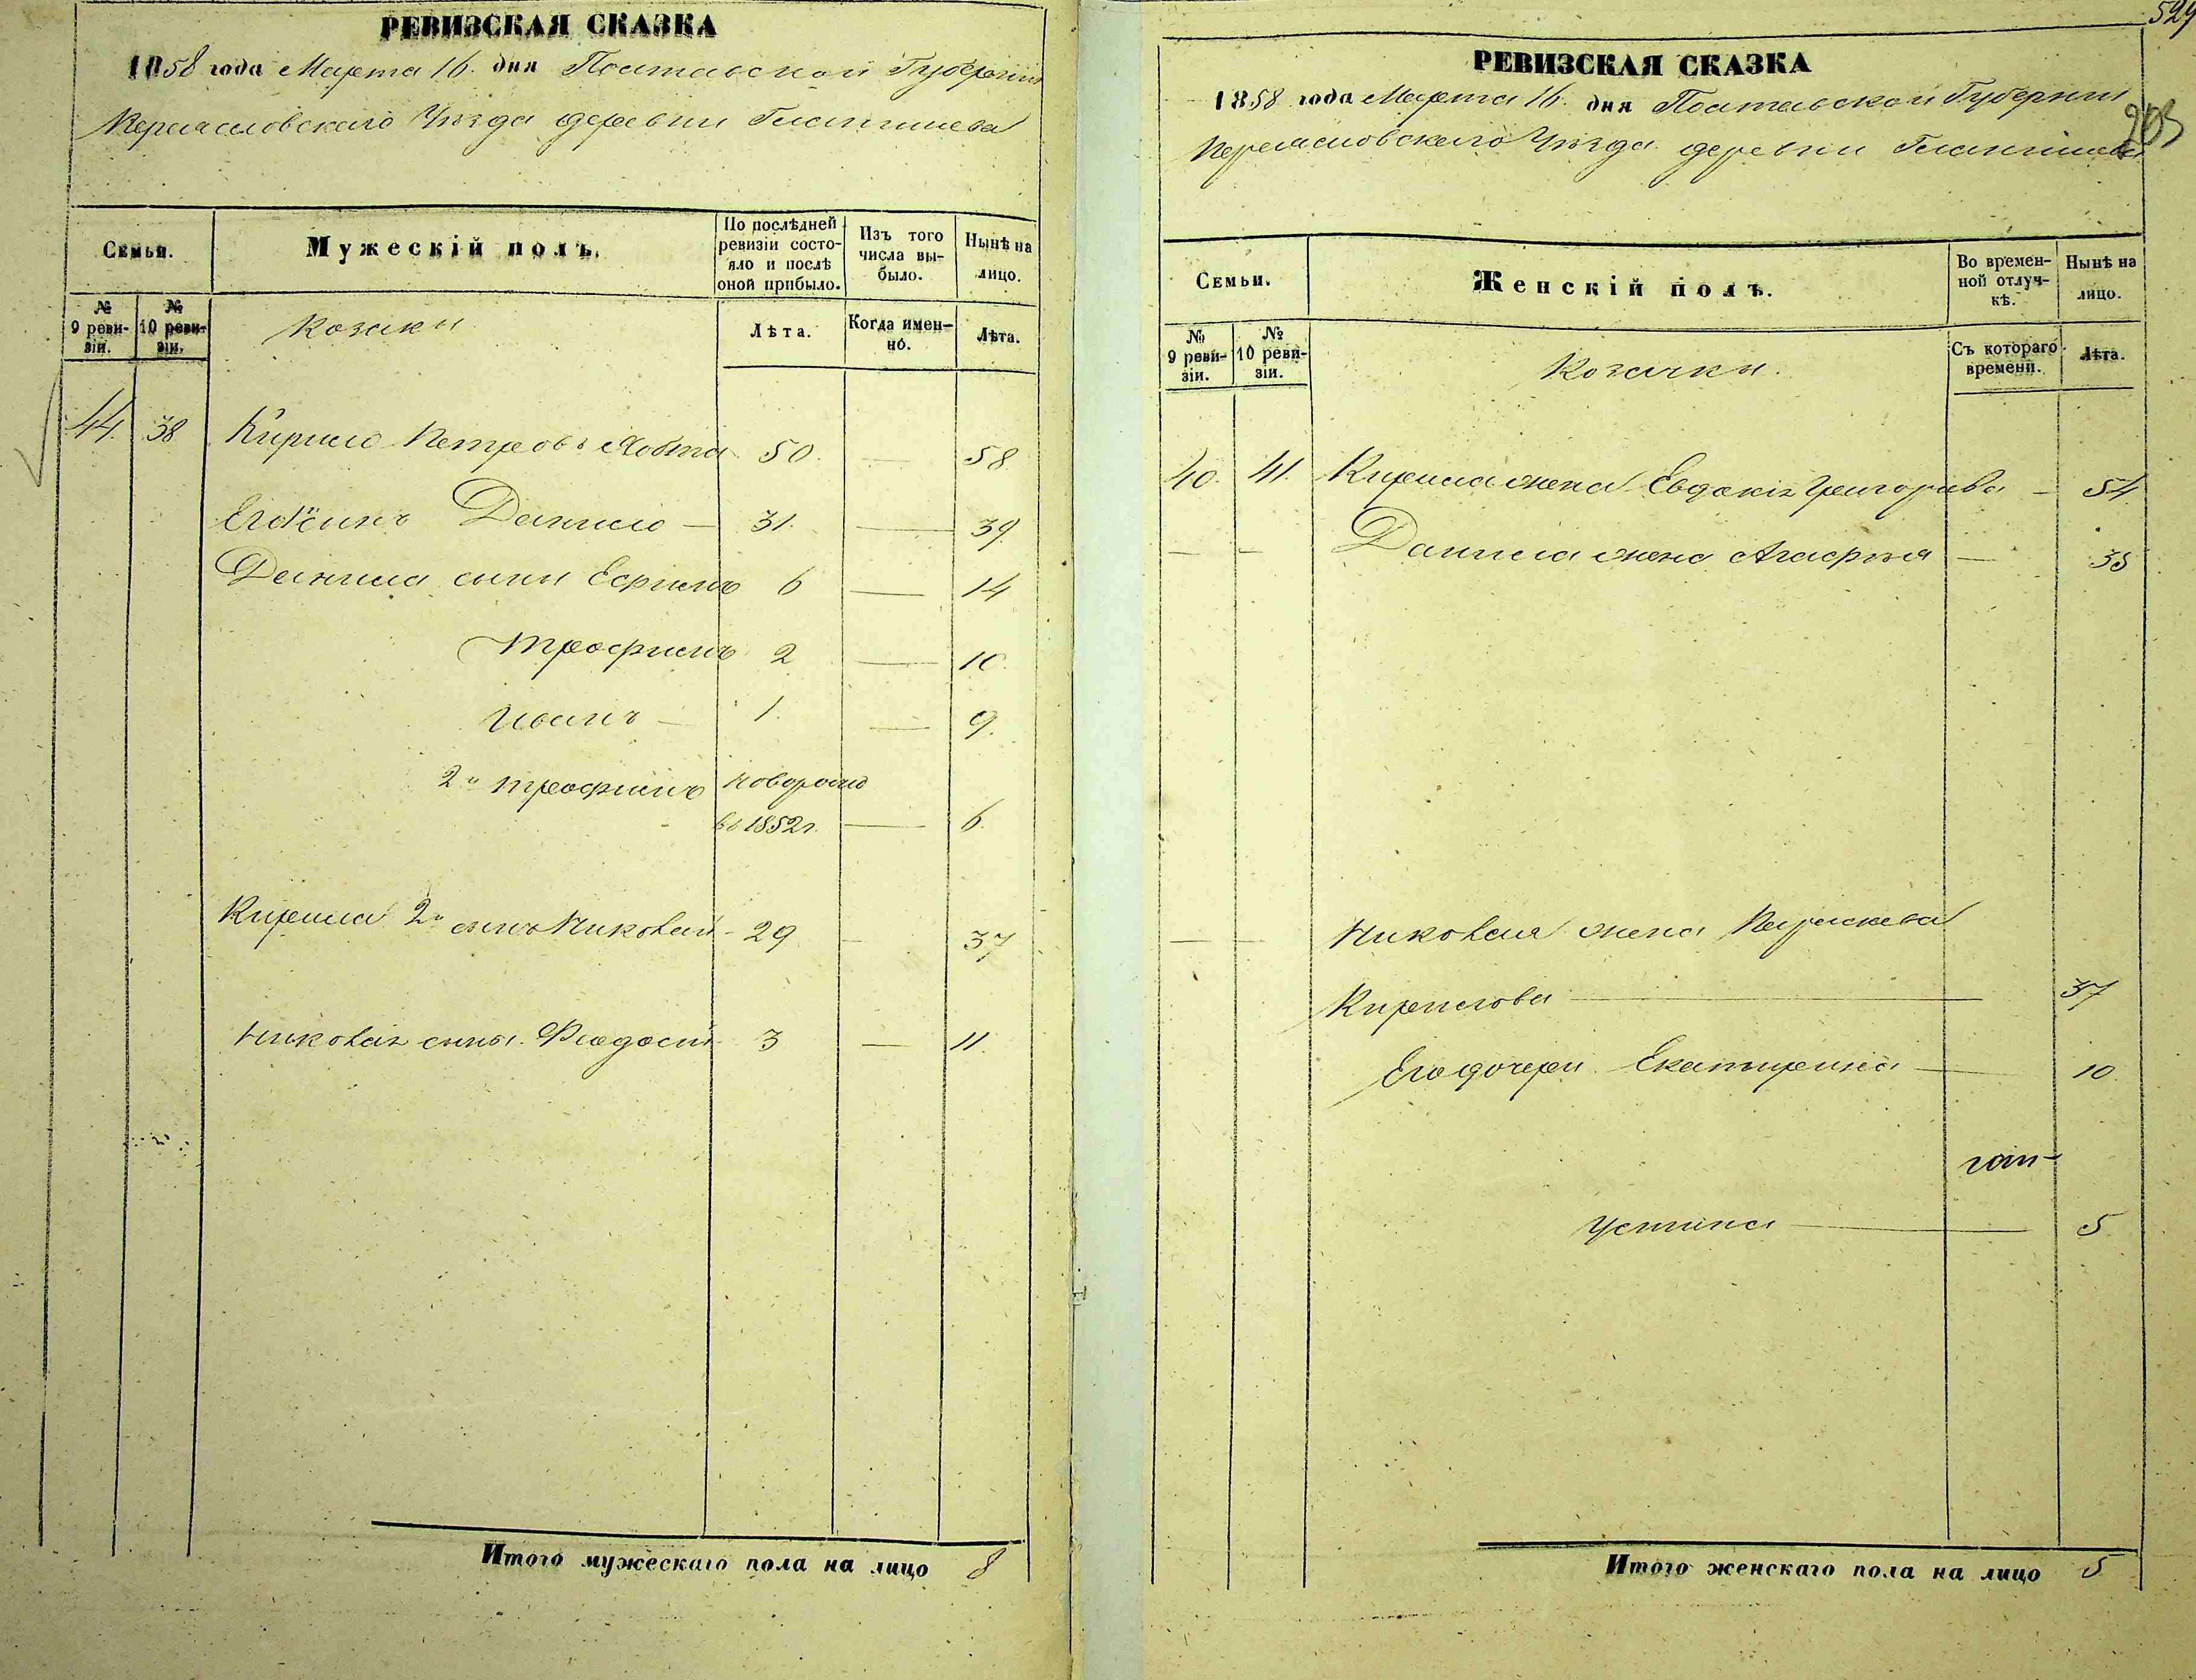 РЕВИЗСКАЯ СКАЗКА
1858 года Марта 16. дня Полтавской Губернии
Переяславскаго Уѣзда деревни
Семьи.
Мужескій полъ.
По послѣдней ревизіи состояло и послѣ оной прибыло.
Изъ того числа выбыло.
Нынѣ на лицо.
№ 9 ревизіи.
№ 10 ревизіи.
Козаки
Лѣта.
Когда именно.
Лѣта.
44. 38 Кирило Петровъ Хобта 50. — 58.
Его сынъ Данило — 31. — 39.
Данила сыны Ефимъ 6 — 14
Трофимъ 2 — 10.
Иванъ — 1. — 9.
2й Трофимъ новорожд
въ 1852г. — 6.
Кирила 2й сынъ Николай 29 — 37
Николая сынъ Феодосій 3 — 11.
Итого мужескаго пола на лицо 8
529
203
РЕВИЗСКАЯ СКАЗКА
1858 года Марта 16. дня Полтавской Губернии
Переяславскаго Уѣзда деревни
Семьи.
Женскій полъ.
Во временной отлучкѣ.
Нынѣ на лицо.
№ 9 ревизіи.
№ 10 ревизіи.
Козачки.
Съ котораго времени.
Лѣта.
40. 41. Кирила жена Евдокія Григорьева — 54.
— — Данила жена Агафья — 38
— — Николая жена Параскева
Кирилова — 37
Его дочери Екатерина — 10.
Устина — 5
Итого женскаго пола на лицо 5